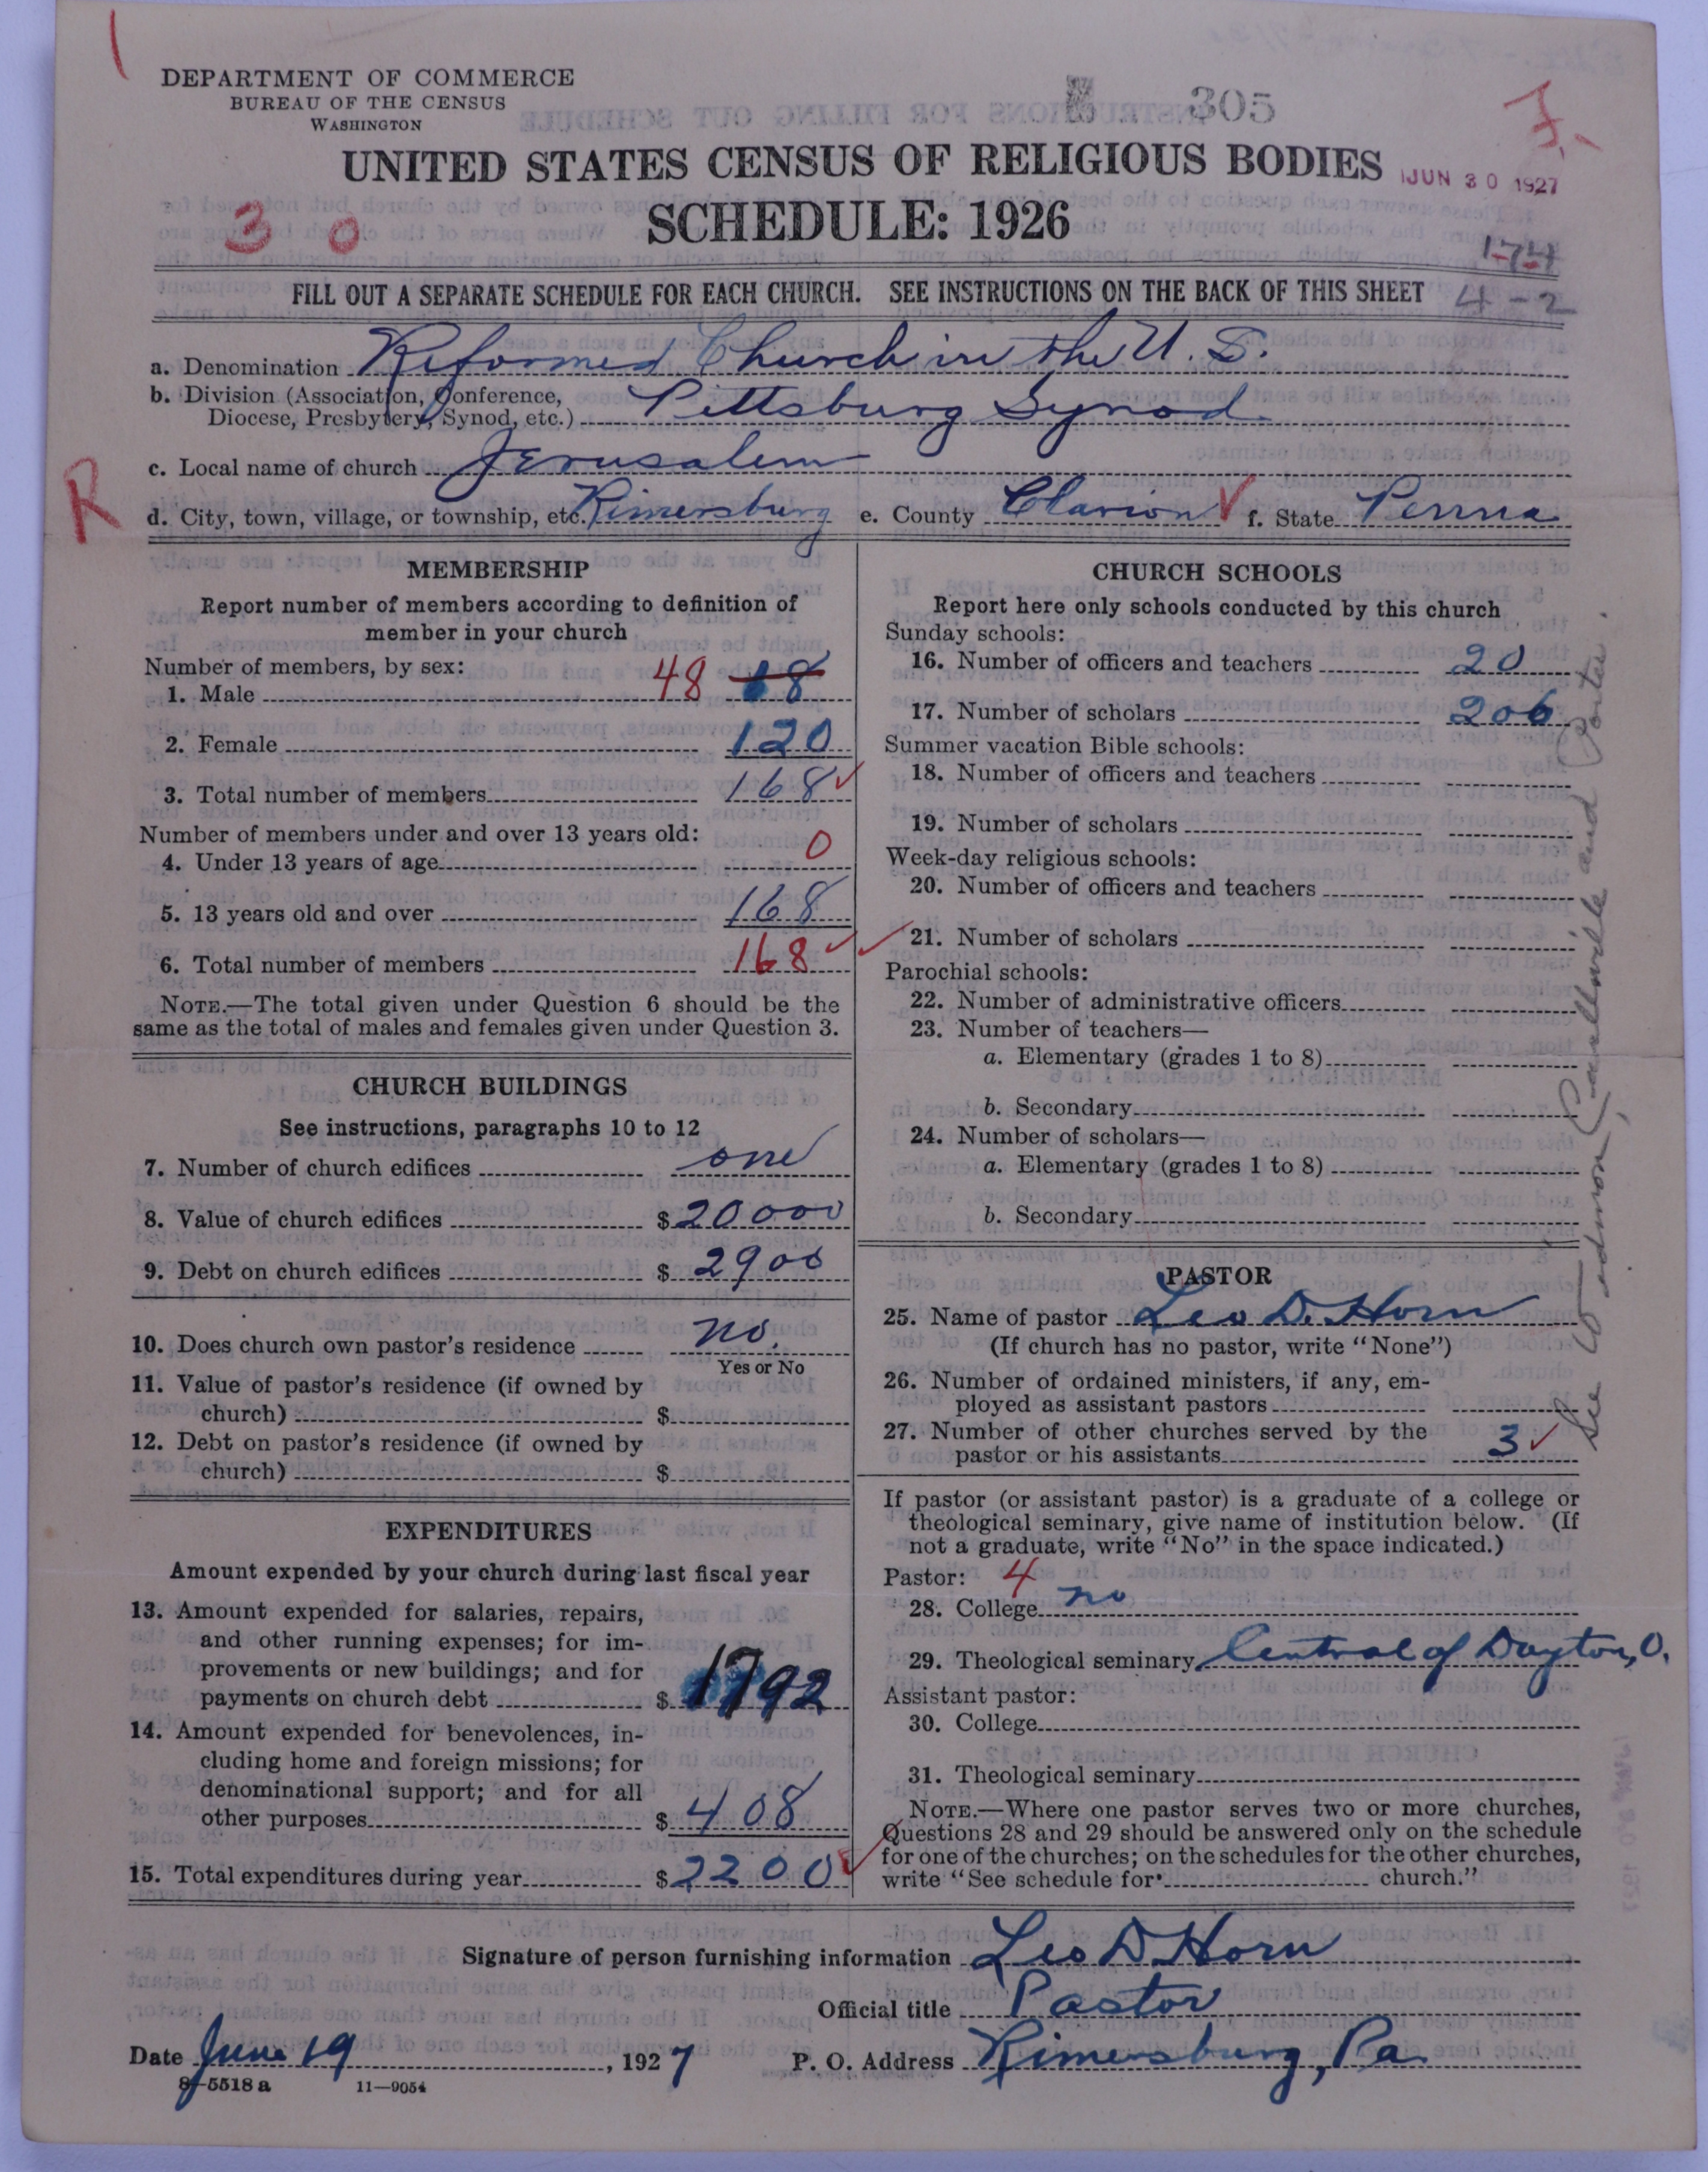 DEPARTMENT OF COMMERCE
BUREAU OF THE CENSUS
WASHINGTON
305
F.
UNITED STATES CENSUS OF RELIGIOUS BODIES
JUN 30 1927
30
SCHEDULE: 1926
1-7-4
FILL OUT A SEPARATE SCHEDULE FOR EACH CHURCH. SEE INSTRUCTIONS ON THE BACK OF THIS SHEET
4-2
a. Denomination Reformed Church in the U. S.
b. Division (Association, Conference,
Diocese, Presbytery, Synod, etc.) Pittsburg Synod
c. Local name of church Jerusalem
R
d. City, town, village, or township, etc. Rimersburg e. County Clarion f. State Penna
MEMBERSHIP
Report number of members according to definition of
member in your church
Number of members, by sex:
1. Male 48 18
2. Female 120
3. Total number of members 168
Number of members under and over 13 years old:
4. Under 13 years of age 0
5. 13 years old and over 168
6. Total number of members 168
NOTE.—The total given under Question 6 should be the
same as the total of males and females given under Question 3.
CHURCH BUILDINGS
See instructions, paragraphs 10 to 12
7. Number of church edifices one
8. Value of church edifices $20000
9. Debt on church edifices $2900
10. Does church own pastor's residence no.
Yes or No
11. Value of pastor's residence (if owned by
church) $
12. Debt on pastor's residence (if owned by
church) $
EXPENDITURES
Amount expended by your church during last fiscal year
13. Amount expended for salaries, repairs,
and other running expenses; for im-
provements or new buildings; and for
payments on church debt $1792
14. Amount expended for benevolences, in-
cluding home and foreign missions; for
denominational support; and for all
other purposes $408
15. Total expenditures during year $2200
CHURCH SCHOOLS
Report here only schools conducted by this church
Sunday schools:
16. Number of officers and teachers 20
17. Number of scholars 206
Summer vacation Bible schools:
18. Number of officers and teachers
19. Number of scholars
Week-day religious schools:
20. Number of officers and teachers
21. Number of scholars
Parochial schools:
22. Number of administrative officers
23. Number of teachers—
a. Elementary (grades 1 to 8)
b. Secondary
24. Number of scholars—
a. Elementary (grades 1 to 8)
b. Secondary
PASTOR
25. Name of pastor Leo D. Horn
(If church has no pastor, write "None")
26. Number of ordained ministers, if any, em-
ployed as assistant pastors
27. Number of other churches served by the
pastor or his assistants 3
If pastor (or assistant pastor) is a graduate of a college or
theological seminary, give name of institution below. (If
not a graduate, write "No" in the space indicated.)
Pastor: 4
28. College no
29. Theological seminary Central of Dayton, O.
Assistant pastor:
30. College
31. Theological seminary
NOTE.—Where one pastor serves two or more churches,
Questions 28 and 29 should be answered only on the schedule
for one of the churches; on the schedules for the other churches,
write "See schedule for church."
See and Porter.
Signature of person furnishing information Leo D Horn
Official title Pastor
Date June 19, 1927 P. O. Address Rimersburg, Pa.
8-5518 a 11—9054